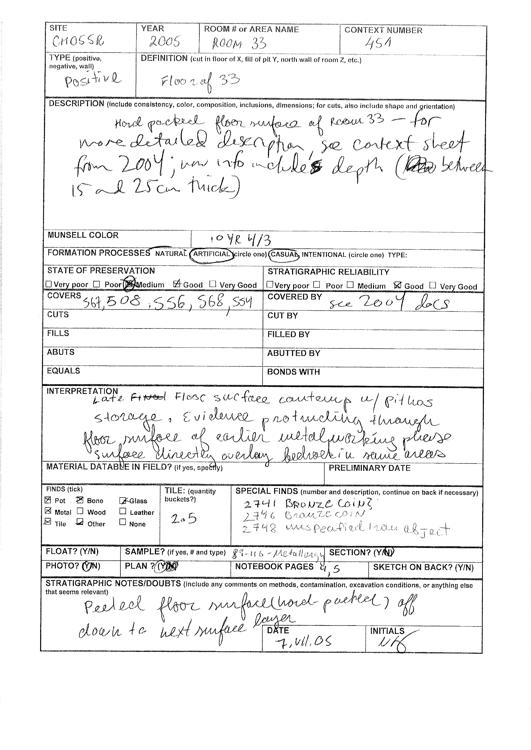 SITE
CHOSSR
YEAR
2005
ROOM # or AREA NAME
ROOM 33
CONTEXT NUMBER
451
TYPE (positive, negative, wall)
Positive
DEFINITION (cut in floor of X, fill of pit Y, north wall of room Z, etc.)
Floor of 33
DESCRIPTION (include consistency, color, composition, inclusions, dimensions; for cuts, also include shape and orientation)
Hard packed floor surface of Room 33 – for
more detailed description, see context sheet
from 2004; new info includes depth (between
15 and 25cm thick)
MUNSELL COLOR
10YR 4/3
FORMATION PROCESSES NATURAL, ARTIFICIAL (circle one) CASUAL, INTENTIONAL (circle one) TYPE:
STATE OF PRESERVATION
☐ Very poor ☐ Poor ☒ Medium ☑ Good ☐ Very Good
STRATIGRAPHIC RELIABILITY
☐ Very poor ☐ Poor ☐ Medium ☒ Good ☐ Very Good
COVERS 567, 508, 556, 568, 554
COVERED BY see 2004 docs
CUTS
CUT BY
FILLS
FILLED BY
ABUTS
ABUTTED BY
EQUALS
BONDS WITH
INTERPRETATION
Late Floor surface contemp w/ pithos
storage. Evidence protruding through
floor surface of earlier metalworking phase
surface directly overlay bedrock in some areas
MATERIAL DATABLE IN FIELD? (if yes, specify)
PRELIMINARY DATE
FINDS (tick)
☒ Pot ☒ Bone ☑ Glass
☒ Metal ☐ Wood ☐ Leather
☒ Tile ☑ Other ☐ None
TILE: (quantity buckets?)
2.5
SPECIAL FINDS (number and description, continue on back if necessary)
2741 BRONZE COINS
2746 BRONZE COIN
2748 unspecified Iron object
FLOAT? (Y/N)
SAMPLE? (if yes, # and type) 83-116 - Metallurgy
SECTION? (Y/N)
PHOTO? (Y/N)
PLAN? (Y/N)
NOTEBOOK PAGES 4,5
SKETCH ON BACK? (Y/N)
STRATIGRAPHIC NOTES/DOUBTS (include any comments on methods, contamination, excavation conditions, or anything else
that seems relevant)
Peeled floor surface (hard packed) off
down to next surface layer
DATE
7.VII.05
INITIALS